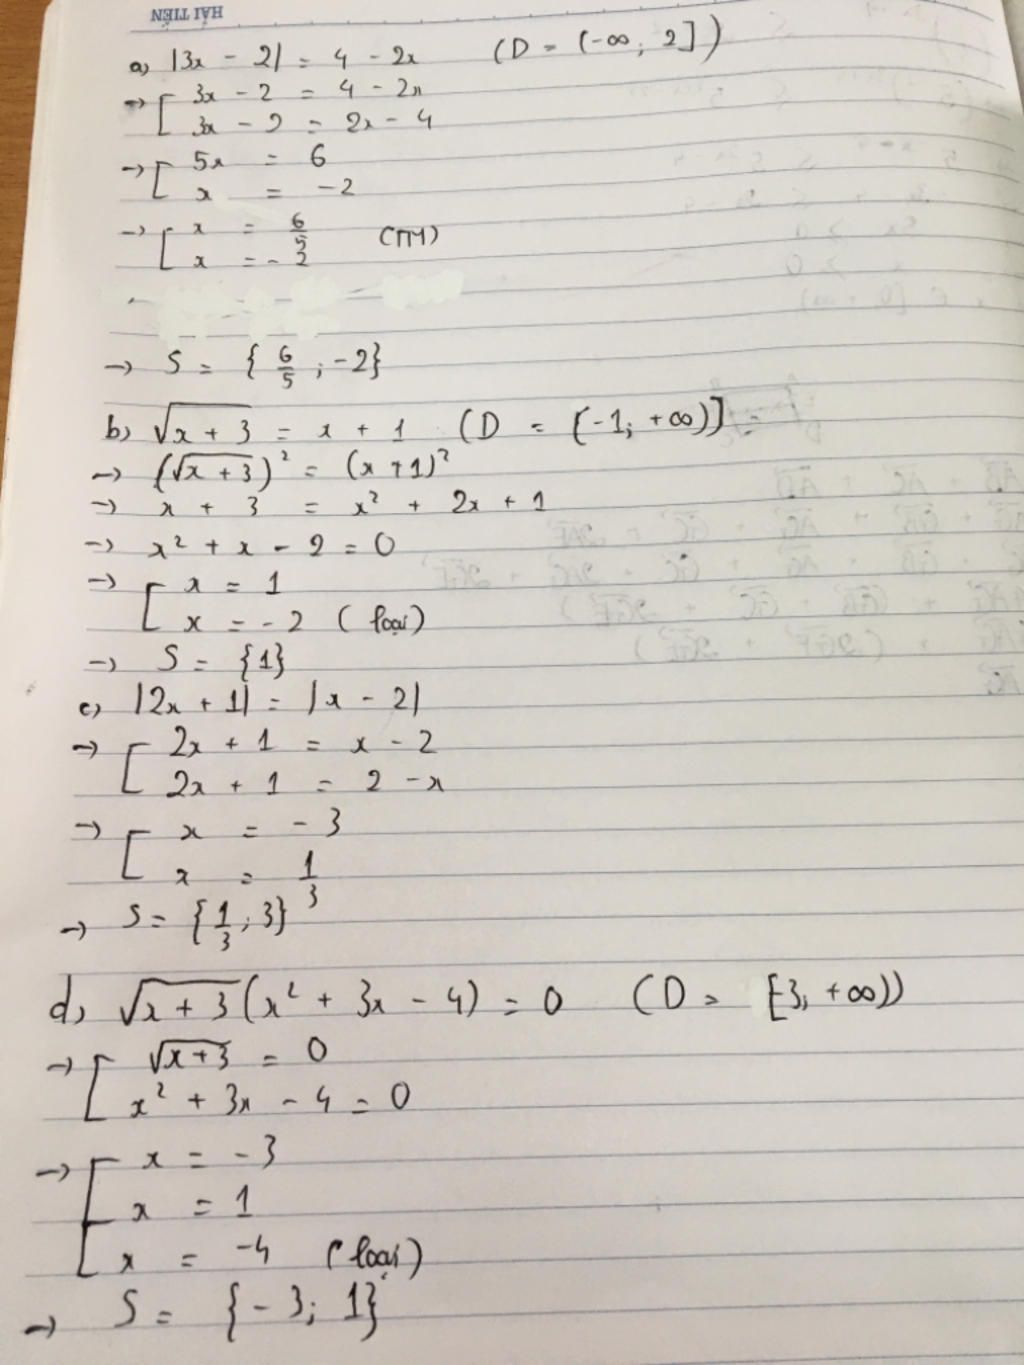 HẢI TIẾN
a) |3x - 2| = 4 - 2x (D = (-∞; 2])
→ [ 3x - 2 = 4 - 2x
3x - 2 = 2x - 4
→ [ 5x = 6
x = -2
→ [ x = 6/5 (TM)
x = -2
→ S = { 6/5 ; -2}
b) √(x + 3) = x + 1 (D = [-1; +∞)]
→ (√(x + 3))² = (x + 1)²
→ x + 3 = x² + 2x + 1
→ x² + x - 2 = 0
→ [ x = 1
x = -2 (loại)
→ S = {1}
c) |2x + 1| = |x - 2|
→ [ 2x + 1 = x - 2
2x + 1 = 2 - x
→ [ x = -3
x = 1/3
→ S = {1/3; 3}
d) √(x + 3)(x² + 3x - 4) = 0 (D = [-3; +∞))
→ [ √(x + 3) = 0
x² + 3x - 4 = 0
→ [ x = -3
x = 1
x = -4 (loại)
→ S = {-3; 1}